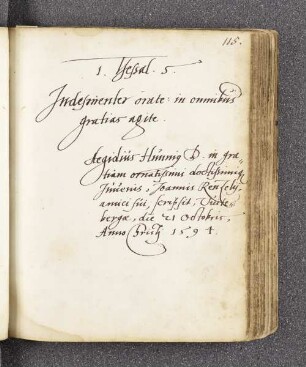 115.
1. Thessal. 5.
Indesinenter orate: in omnibus
gratias agite.
Aegidius Hunnig D. in gra-
tiam ornatissimi doctissimiq
Juvenis, Joannis
amici sui, scripsit, Vite-
bergæ, die 21 Octobris,
Anno Christi 1594.